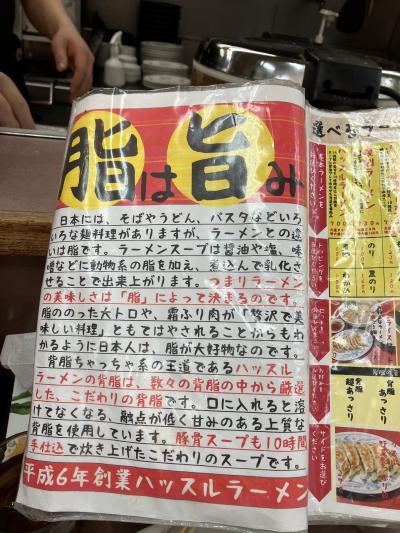 脂は旨み
日本には、そばやうどん、パスタなどいろ
いろな麺料理がありますが、ラーメンとの違
いは脂です。ラーメンスープは醤油や塩、味
噌などに動物系の脂を加え、煮込んで乳化さ
せることで出来上がります。つまりラーメン
の美味しさは「脂」によって決まるのです。
脂ののった大トロや、霜ふり肉が「贅沢で美
味しい料理」ともてはやされることからもわ
かるように日本人は、脂が大好物なのです。
背脂ちゃっちゃ系の王道であるハッスル
ラーメンの背脂は、数々の背脂の中から厳選
した、こだわりの背脂です。口に入れると溶
けてなくなる、融点が低く甘みのある上質な
背脂を使用しています。豚骨スープも10時間
手仕込で炊き上げたこだわりのスープです。
平成6年創業ハッスルラーメン
選べるラー
のり
黒のり
わかめ
背脂
あっさり
背脂
超あっさり
サイドをお選び
ください